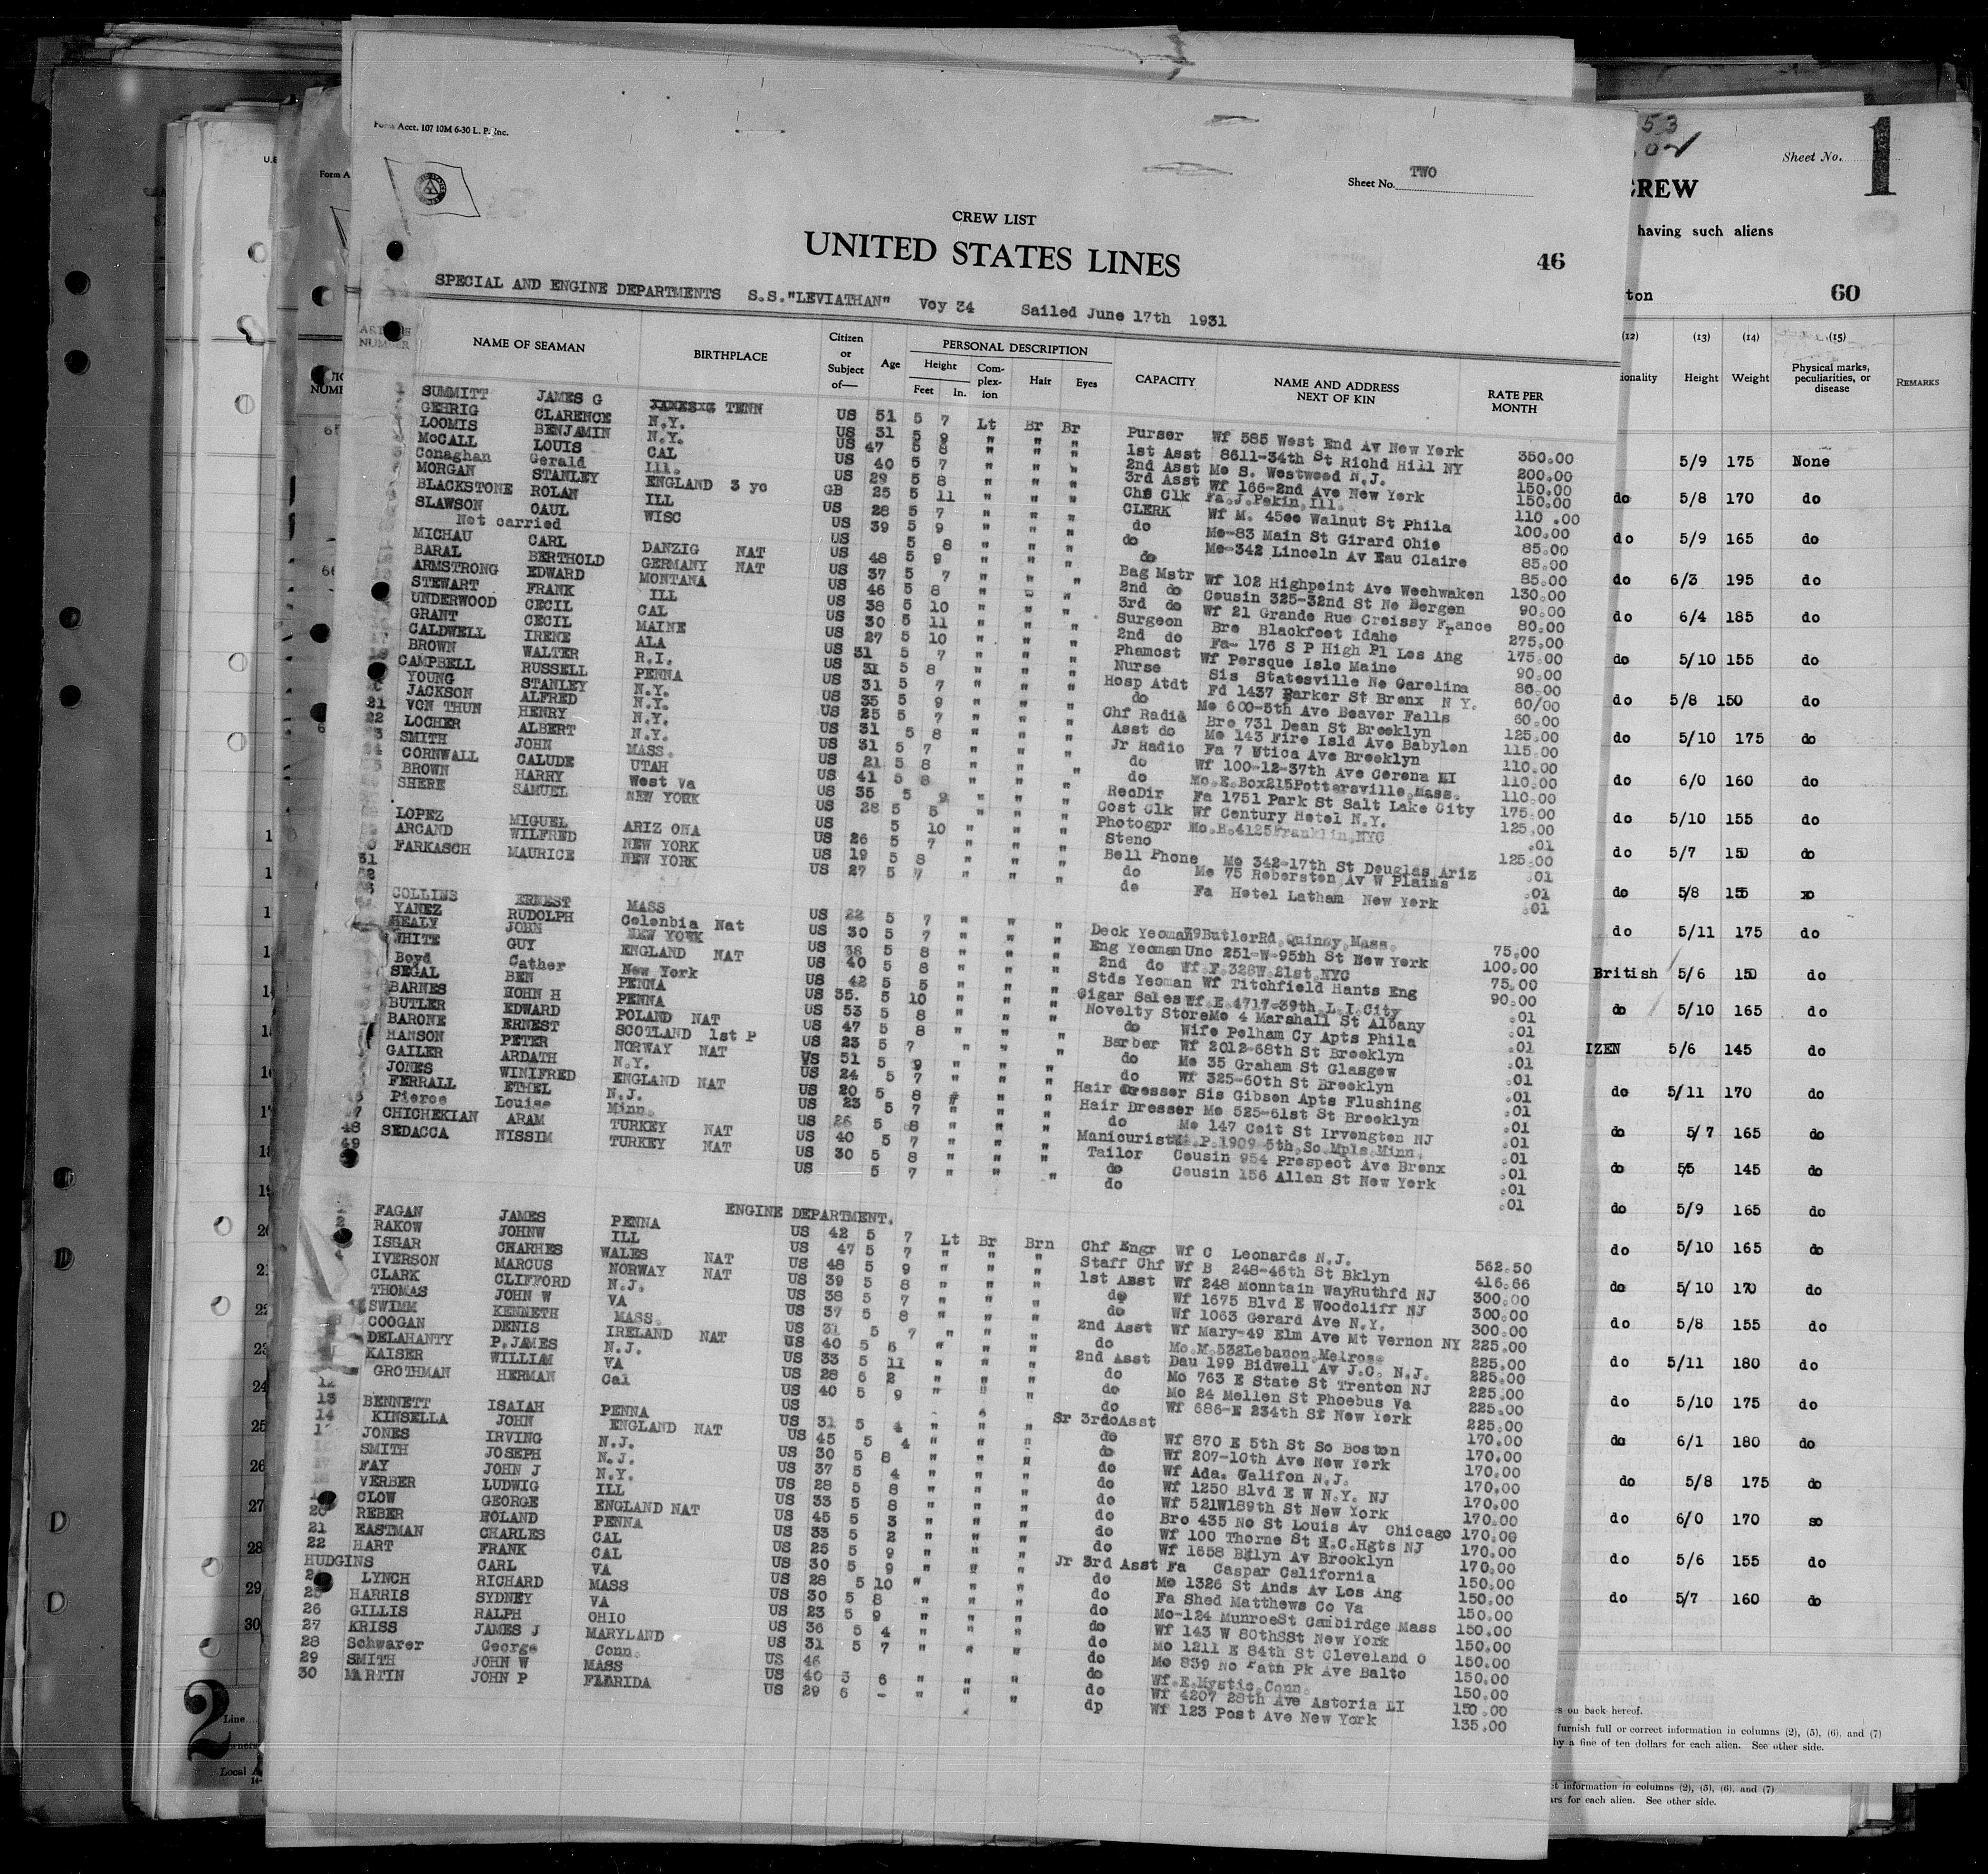 Form Acct. 107 10M 6-30 L. P. Inc.
Sheet No. TWO
CREW LIST
UNITED STATES LINES
46
SPECIAL AND ENGINE DEPARTMENTS S.S."LEVIATHAN" Voy 34 Sailed June 17th 1931
NAME OF SEAMAN BIRTHPLACE Citizen or Subject of— Age PERSONAL DESCRIPTION Height Feet In. Complexion Hair Eyes CAPACITY NAME AND ADDRESS NEXT OF KIN RATE PER MONTH
SUMMITT JAMES G TENN US 51 5 7 Lt Br Br Purser Wf 585 West End Av New York 350.00
GEHRIG CLARENCE N.Y. US 31 5 9 " " " 1st Asst 8611-34th St Richd Hill NY 200.00
LOOMIS BENJAMIN N.Y. US 47 5 8 " " " 2nd Asst Mo S. Westwood N.J. 150.00
McCALL LOUIS CAL US 40 5 7 " " " 3rd Asst Wf 166-2nd Ave New York 150.00
Conaghan Gerald Ill. US 29 5 8 " " " Chf Clk Fa.J.Pekin,Ill. 110.00
MORGAN STANLEY ENGLAND 3 yo GB 25 5 11 " " " CLERK Wf M. 4500 Walnut St Phila 100.00
BLACKSTONE ROLAN ILL US 28 5 7 " " " do Mo-83 Main St Girard Ohio 85.00
SLAWSON CAUL WISC US 39 5 9 " " " do Mo-342 Lincoln Av Eau Claire 85.00
Not carried US 5 8 " " " do 85.00
MICHAU CARL DANZIG NAT US 48 5 9 " " " Bag Mstr Wf 102 Highpoint Ave Weehwaken 130.00
BARAL BERTHOLD GERMANY NAT US 37 5 7 " " " 2nd do Cousin 325-32nd St No Bergen 90.00
ARMSTRONG EDWARD MONTANA US 46 5 8 " " " 3rd do Wf 21 Grande Rue Croissy France 80.00
STEWART FRANK ILL US 38 5 10 " " " Surgeon Bro Blackfoot Idaho 275.00
UNDERWOOD CECIL CAL US 30 5 11 " " " 2nd do Fa- 176 S P High Pl Los Ang 175.00
GRANT CECIL MAINE US 27 5 10 " " " Phamost Wf Persque Isle Maine 90.00
CALDWELL IRENE ALA US 31 5 7 " " " Nurse Sis Statesville No Carolina
BROWN WALTER R.I. US 31 5 8 " " " Hosp Atdt Fd 1437 Parker St Bronx N Y. 60/00
CAMPBELL RUSSELL PENNA US 31 5 7 " " " do Mo 600-5th Ave Beaver Falls 60.00
YOUNG STANLEY N.Y. US 35 5 9 " " " Chf Radio Bro 731 Dean St Brooklyn 125.00
JACKSON ALFRED N.Y. US 25 5 7 " " " Asst do Mo 143 Fire Isld Ave Babylon 115.00
21 VON THUN HENRY N.Y. US 31 5 8 " " " Jr Radio Fa 7 Utica Ave Brooklyn 110.00
22 LOCHER ALBERT N.Y. US 31 5 7 " " " do Wf 100-12-37th Ave Corona LI 110.00
SMITH JOHN MASS. US 21 5 8 " " " do Mo.E.Box215Pottersville,Mass. 110.00
CORNWALL CALUDE UTAH US 41 5 8 " " " RecDir Fa 1751 Park St Salt Lake City 175.00
BROWN HARRY West Va US 35 5 9 " " " Cost Clk Wf Century Hotel N.Y. 125.00
SHERE SAMUEL NEW YORK US 28 5 5 " " " Photogpr Mo.B.4125Franklin,NYC .01
US 5 10 " " " Steno 125.00
LOPEZ MIGUEL ARIZ ONA US 26 5 7 " " " Bell Phone Mo 342-17th St Douglas Ariz .01
ARCAND WILFRED NEW YORK US 19 5 8 " " " do Mo 75 Roberston Av W Plains .01
FARKASCH MAURICE NEW YORK US 27 5 7 " " " do Fa Hotel Latham New York .01
31
COLLINS ERNEST MASS US 22 5 7 " " " Deck Yeoman 79ButlerRd,Quincy,Mass. 75.00
YANEZ RUDOLPH Colonbia Nat US 30 5 7 " " " Eng Yeoman Unc 251-W-95th St New York 100.00
HEALY JOHN NEW YORK US 38 5 8 " " " 2nd do Wf.F.328W.21st,NYC 75.00
WHITE GUY ENGLAND NAT US 40 5 8 " " " Stds Yeoman Wf Titchfield Hants Eng 90.00
Boyd Cather New York US 42 5 5 " " " Cigar Sales Wf.E.4717-39th,L.I.City .01
SEGAL BEN PENNA US 35. 5 10 " " " Novelty Store Mo 4 Marshall St Albany .01
BARNES HOHN H PENNA US 53 5 8 " " " do Wife Pelham Cy Apts Phila .01
BUTLER EDWARD POLAND NAT US 47 5 8 " " " Barber Wf 2012-68th St Brooklyn .01
BARONE ERNEST SCOTLAND 1st P US 23 5 7 " " " do Mo 35 Graham St Glasgow .01
HANSON PETER NORWAY NAT US 51 5 9 " " " do Wf 325-60th St Brooklyn .01
GAILER ARDATH N.Y. US 24 5 7 " " " Hair Dresser Sis Gibson Apts Flushing .01
JONES WINIFRED ENGLAND NAT US 20 5 8 " " " Hair Dresser Mo 525-61st St Brooklyn .01
FERRALL ETHEL N.J. US 23 5 7 " " " do Mo 147 Coit St Irvongton NJ .01
Pierce Louise Minn. US 26 5 8 " " " Manicurist Mo.P.1909 5th,So.Mpls.Minn. .01
CHICHEKIAN ARAM TURKEY NAT US 40 5 7 " " " Tailor Cousin 954 Prospect Ave Bronx .01
48 SEDACCA NISSIM TURKEY NAT US 30 5 8 " " " do Cousin 156 Allen St New York .01
49 US 5 7 " " " do .01
ENGINE DEPARTMENT.
FAGAN JAMES PENNA US 42 5 7 Lt Br Brn Chf Engr Wf C Leonards N.J. 562.50
RAKOW JOHNW ILL US 47 5 7 " " " Staff Chf Wf B 248-46th St Bklyn 416.66
ISGAR CHARHES WALES NAT US 48 5 9 " " " 1st Asst Wf 248 Monntain WayRuthfd NJ 300.00
IVERSON MARCUS NORWAY NAT US 39 5 8 " " " do Wf 1675 Blvd E Woodcliff NJ 300.00
CLARK CLIFFORD N.J. US 38 5 7 " " " do Wf 1063 Gerard Ave N.Y. 300.00
THOMAS JOHN W VA US 37 5 8 " " " 2nd Asst Wf Mary-49 Elm Ave Mt Vernon NY 225.00
SWIMM KENNETH MASS. US 31 5 7 " " " do Mo.M.532Lebanon,Melrose 225.00
COOGAN DENIS IRELAND NAT US 40 5 6 " " " 2nd Asst Dau 199 Bidwell Av J.C. N.J. 225.00
DELAHANTY P.JAMES N.J. US 33 5 11 " " " do Mo 763 E State St Trenton NJ 225.00
KAISER WILLIAM VA US 28 6 2 " " " do Mo 24 Mellen St Phoebus Va 225.00
GROTHMAN HERMAN Cal US 40 5 9 " " " do Wf 686-E 234th St New York 225.00
12 US
13 BENNETT ISAIAH PENNA US 31 5 4 " " " Sr 3rdoAsst do Wf 870 E 5th St So Boston 170.00
14 KINSELLA JOHN ENGLAND NAT US 45 5 4 " " " do Wf 207-10th Ave New York 170.00
JONES IRVING N.J. US 30 5 8 " " " do Wf Ada. Califon N.J. 170.00
SMITH JOSEPH N.J. US 37 5 4 " " " do Wf 1250 Blvd E W N.Y. NJ 170.00
FAY JOHN J N.Y. US 28 5 8 " " " do Wf 521W189th St New York 170.00
VERBER LUDWIG ILL US 33 5 8 " " " do Bro 435 No St Louis Av Chicago 170.00
CLOW GEORGE ENGLAND NAT US 45 5 3 " " " do Wf 100 Thorne St J.C.Hgts NJ 170.00
20 REBER ROLAND PENNA US 33 5 2 " " " do Wf 1658 Bklyn Av Brooklyn 170.00
21 EASTMAN CHARLES CAL US 25 5 9 " " " Jr 3rd Asst Fa Caspar California 150.00
22 HART FRANK CAL US 30 5 9 " " " do Mo 1326 St Ands Av Los Ang 150.00
HUDGINS CARL VA US 28 5 10 " " " do Fa Shed Matthews Co Va 150.00
LYNCH RICHARD MASS US 30 5 8 " " " do Mo-124 MunroeSt Cambirdge Mass 150.00
25 HARRIS SYDNEY VA US 23 5 9 " " " do Wf 143 W 80thSSt New York 150.00
26 GILLIS RALPH OHIO US 36 5 4 " " " do Mo 1211 E 84th St Cleveland O 150.00
27 KRISS JAMES J MARYLAND US 31 5 7 " " " do Mo 839 No Patn Pk Ave Balto 150.00
28 Schwarer George Conn. US 46 do Wf.E.Mystic,Conn. 150.00
29 SMITH JOHN W MASS US 40 5 6 " " " do Wf 4207 28th Ave Astoria LI 150.00
30 MARTIN JOHN P FLORIDA US 29 6 - " " " dp Wf 123 Post Ave New York 135.00
53
Sheet No. 1
CREW
having such aliens
ton 60
(12) (13) (14) (15)
ionality Height Weight Physical marks, peculiarities, or disease REMARKS
5/9 175 None
do 5/8 170 do
do 5/9 165 do
do 6/3 195 do
do 6/4 185 do
do 5/10 155 do
do 5/8 150 do
do 5/10 175 do
do 6/0 160 do
do 5/10 155 do
do 5/7 150 do
do 5/8 155 xo
do 5/11 175 do
British 5/6 150 do
do 5/10 165 do
IZEN 5/6 145 do
do 5/11 170 do
do 5/7 165 do
do 5/5 145 do
do 5/9 165 do
do 5/10 165 do
do 5/10 170 do
do 5/8 155 do
do 5/11 180 do
do 5/10 175 do
do 6/1 180 do
do 5/8 175 do
do 6/0 170 so
do 5/6 155 do
do 5/7 160 do
es on back hereof.
furnish full or correct information in columns (2), (5), (6), and (7)
by a fine of ten dollars for each alien. See other side.
information in columns (2), (5), (6), and (7)
ars for each alien. See other side.
Form A
19
20
21
22
23
24
25
26
27
28
29
30
2
Line
Owners
Local A